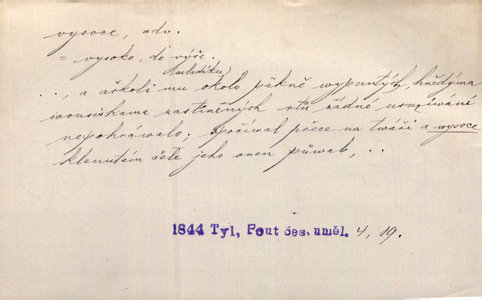 vysoce, adv.
= vysoko, do výše.
mladíku
..., a ačkoli mu okolo pěkně vypnutých, hnědýma
wousiskama zastíněných rtů žádné usmívání
nepohrávalo; spočíval přece na tváři a wysoce
klenutém čele jeho onen půwab, ..
1844 Tyl, Pout čes. uměl. 4, 19.